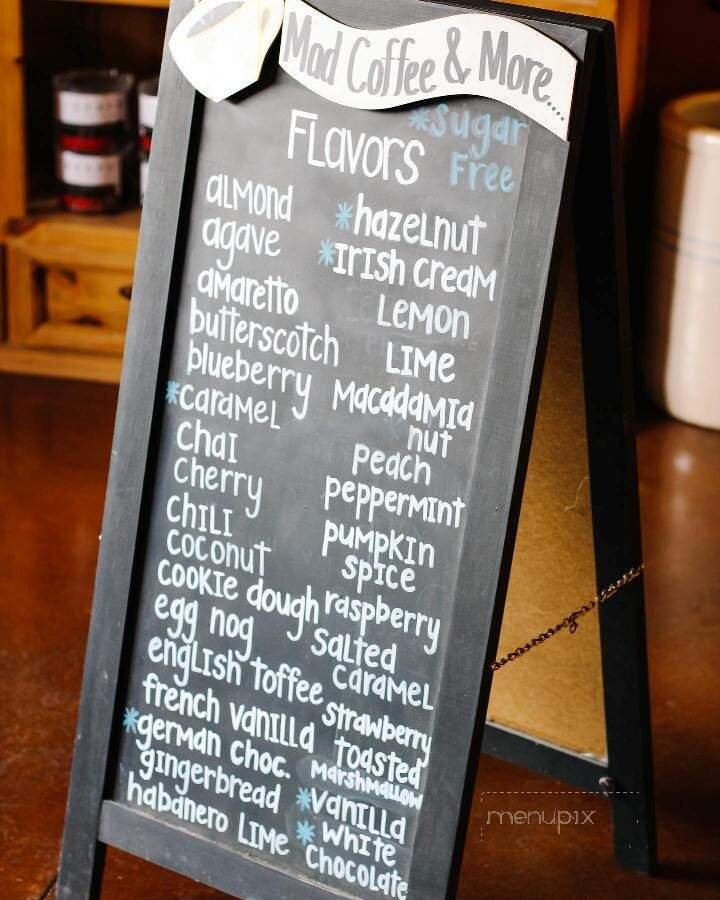 Mad Coffee & More....
*Sugar
Free
Flavors
almond
agave
amaretto
butterscotch
blueberry
*caramel
chai
cherry
chili
coconut
cookie dough
egg nog
english toffee
french vanilla
*german choc.
gingerbread
habanero lime
*hazelnut
*Irish cream
Lemon
Lime
Macadamia
nut
peach
peppermint
pumpkin
spice
raspberry
salted
caramel
strawberry
toasted
marshmallow
*vanilla
*white
chocolate
menupix